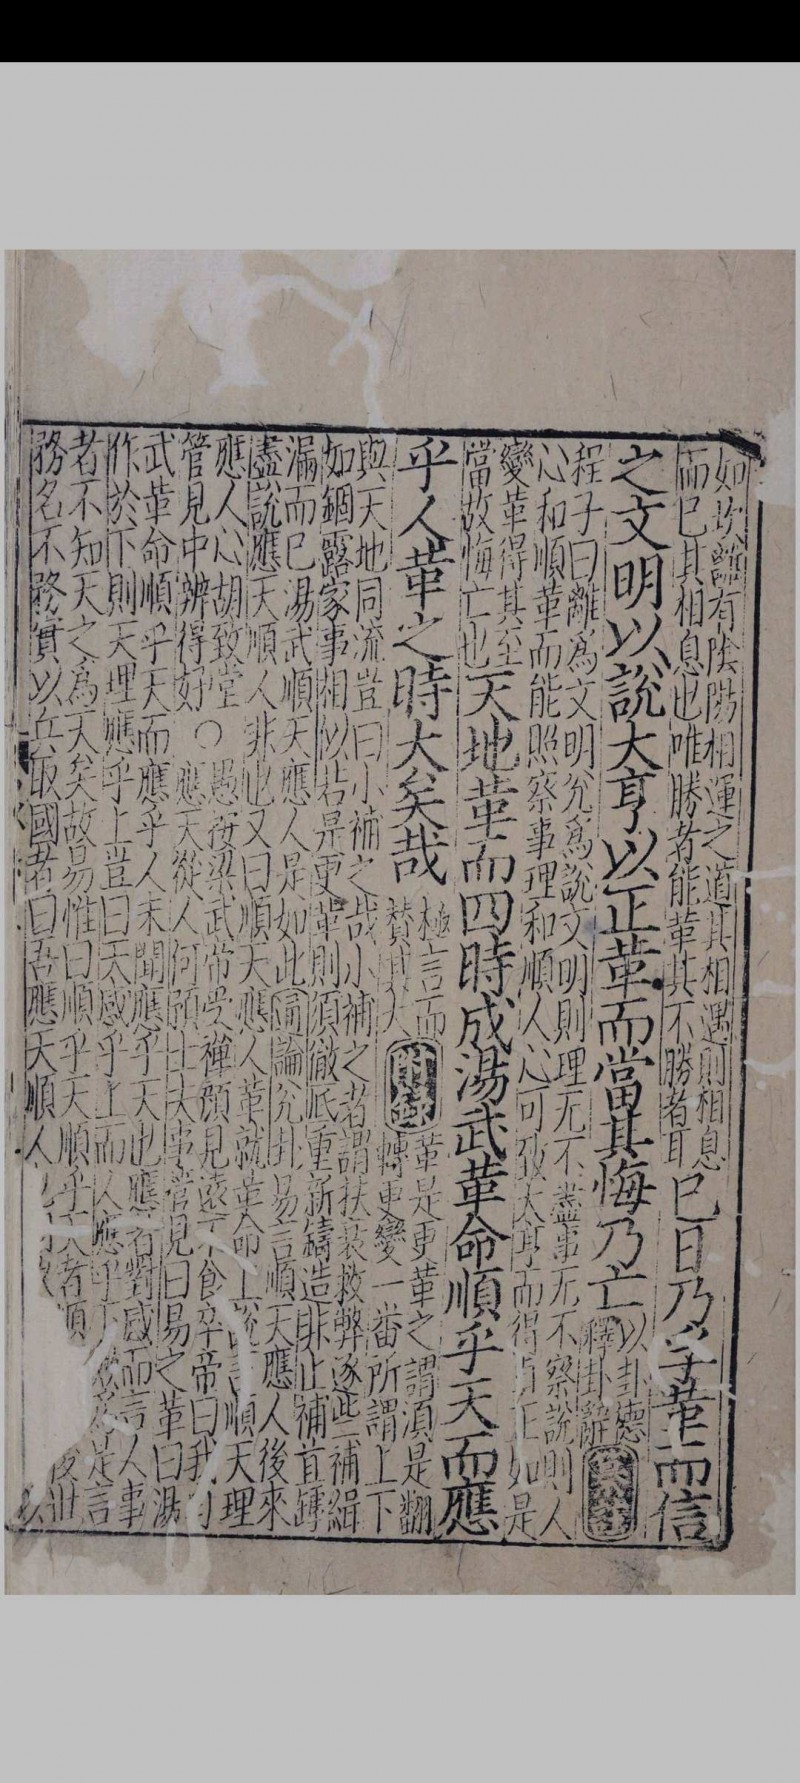 如坎離有陰陽相運之道其相遇則相息
而已其相息也唯勝者能革其不勝者耳
巳日乃孚革而信
之文明以說大亨以正革而當其悔乃亡
以卦德
釋卦辭
程子曰離爲文明兊爲說文明則理无不盡事无不察說則人
心和順革而能照察事理和順人心可致大亨而得貞正如是
變革得其至
當故悔亡也
天地革而四時成湯武革命順乎天而應
乎人革之時大矣哉
極言而
賛其大
附錄
革是更革之謂湏是翻
轉更變一番所謂上下
與天地同流豈曰小補之哉小補之者謂扶衰救弊逐些補緝
如錮露家事相似若是更革則須徹底重新鑄造非止補苴罅
漏而已湯武順天應人是如此 論兊卦易言順天應人後來
盡說應天順人非也又曰順天應人革就革命上說言順天理
應人心胡致堂
管見中辨得好
○愚按梁武帝受禪顏見遠不食卒帝曰我自
應天從人何預士大夫事管見曰易之革曰湯
武革命順乎天而應乎人未聞應乎天也應者對感而言人事
作於下則天理應乎上豈曰天感乎上而人應乎下
是言
者不知天之爲天矣故易惟曰順乎天順乎天者順
後世
務名不務實以兵取國者曰吾應天順人
以